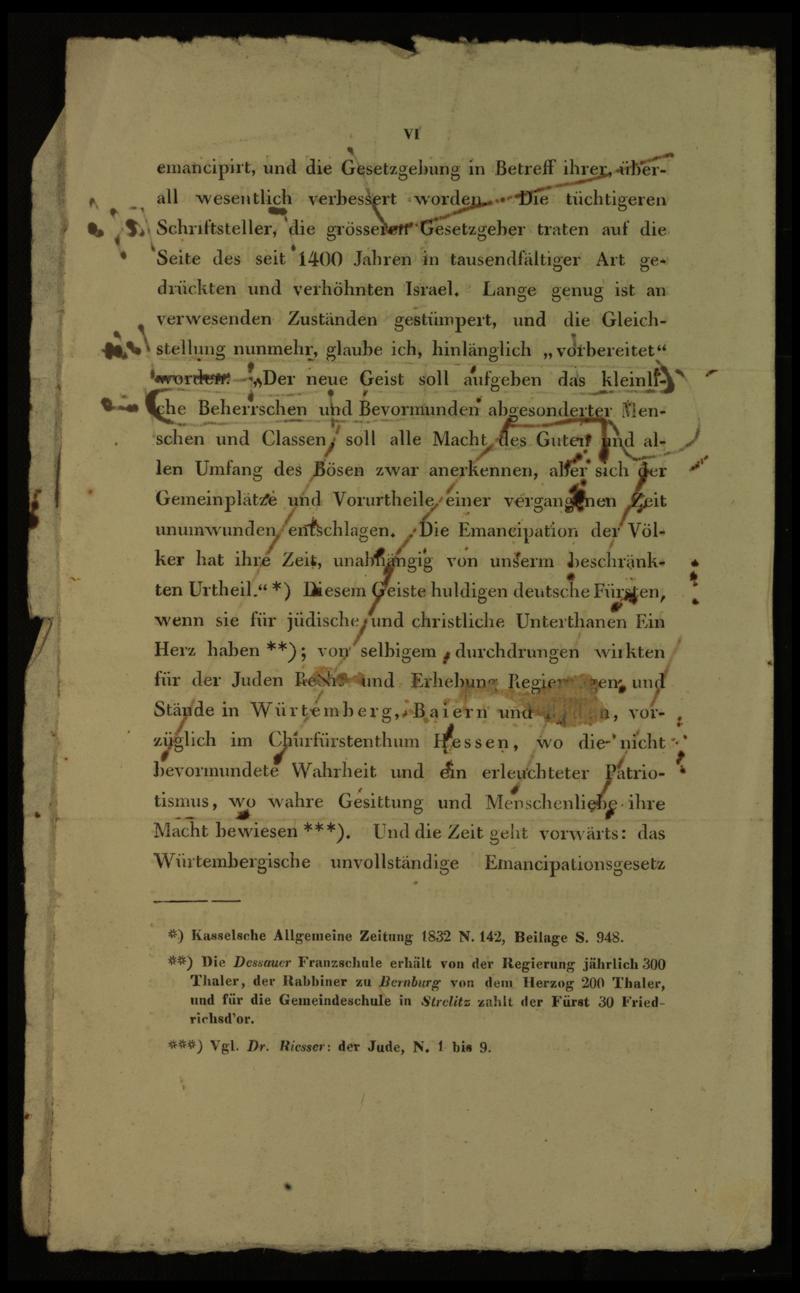 VI
emancipirt, und die Gesetzgebung in Betreff ihrer, über-
all wesentlich verbessert worden. Die tüchtigeren
Schriftsteller, die grösseren Gesetzgeber traten auf die
Seite des seit 1400 Jahren in tausendfältiger Art ge-
drückten und verhöhnten Israel. Lange genug ist an
verwesenden Zuständen gestümpert, und die Gleich-
stellung nunmehr, glaube ich, hinlänglich „vorbereitet“
worden. „Der neue Geist soll aufgeben das kleinli-
che Beherrschen und Bevormunden abgesonderter Men-
schen und Classen, soll alle Macht des Guten und al-
len Umfang des Bösen zwar anerkennen, aber sich der
Gemeinplätze und Vorurtheile einer vergangenen Zeit
unumwunden entschlagen. Die Emancipation der Völ-
ker hat ihre Zeit, unabhängig von unserm beschränk-
ten Urtheil.“ *) Diesem Geiste huldigen deutsche Fürsten,
wenn sie für jüdische und christliche Unterthanen Ein
Herz haben **); von selbigem durchdrungen wirkten
für der Juden und Erhebung Regierungen, und
Stände in Würtemberg, Baiern und vor-
züglich im Churfürstenthum Hessen, wo die nicht
bevormundete Wahrheit und ein erleuchteter Patrio-
tismus, wo wahre Gesittung und Menschenliebe ihre
Macht bewiesen ***). Und die Zeit geht vorwärts: das
Würtembergische unvollständige Emancipationsgesetz
*) Kasselsche Allgemeine Zeitung 1832 N. 142, Beilage S. 948.
**) Die Dessauer Franzschule erhält von der Regierung jährlich 300
Thaler, der Rabbiner zu Bernburg von dem Herzog 200 Thaler,
und für die Gemeindeschule in Strelitz zahlt der Fürst 30 Fried-
richsd'or.
***) Vgl. Dr. Riesser: der Jude, N. 1 bis 9.